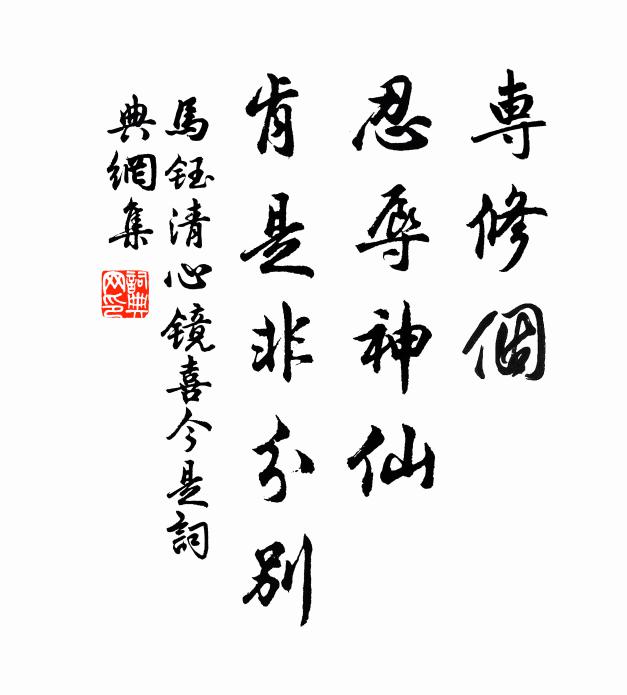 専修個
忍辱神仙
肯是非分別
馬鈺清心鏡喜今是詞
典網集
詞典
网印